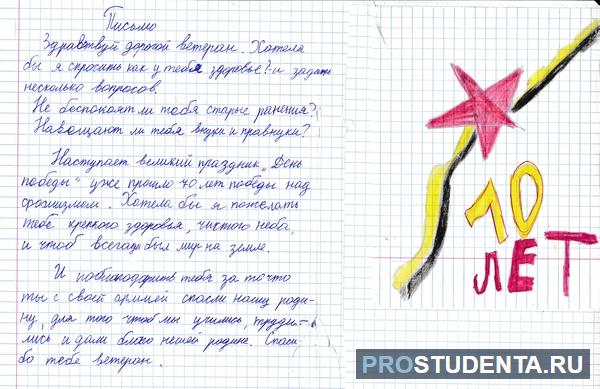 Письмо
Здравствуй дорогой ветеран. Хотела
бы я спросить как у тебя здоровье? и задать
несколько вопросов.
Не беспокоят ли тебя старые ранения?
Навещают ли тебя внуки и правнуки?
Наступает великий праздник „День
победы" уже прошло 70 лет победы над
фашизмом. Хотела бы я пожелать
тебе крепкого здоровья, чистого неба,
и чтоб всегда был мир на земле.
И поблагодарить тебя за то что
ты с своей армией спасли нашу роди-
ну, для того чтоб мы учились, труди-
лись и дали благо нашей родине. Спаси-
бо тебе ветеран.
70
ЛЕТ
PROSTUDENTA.RU